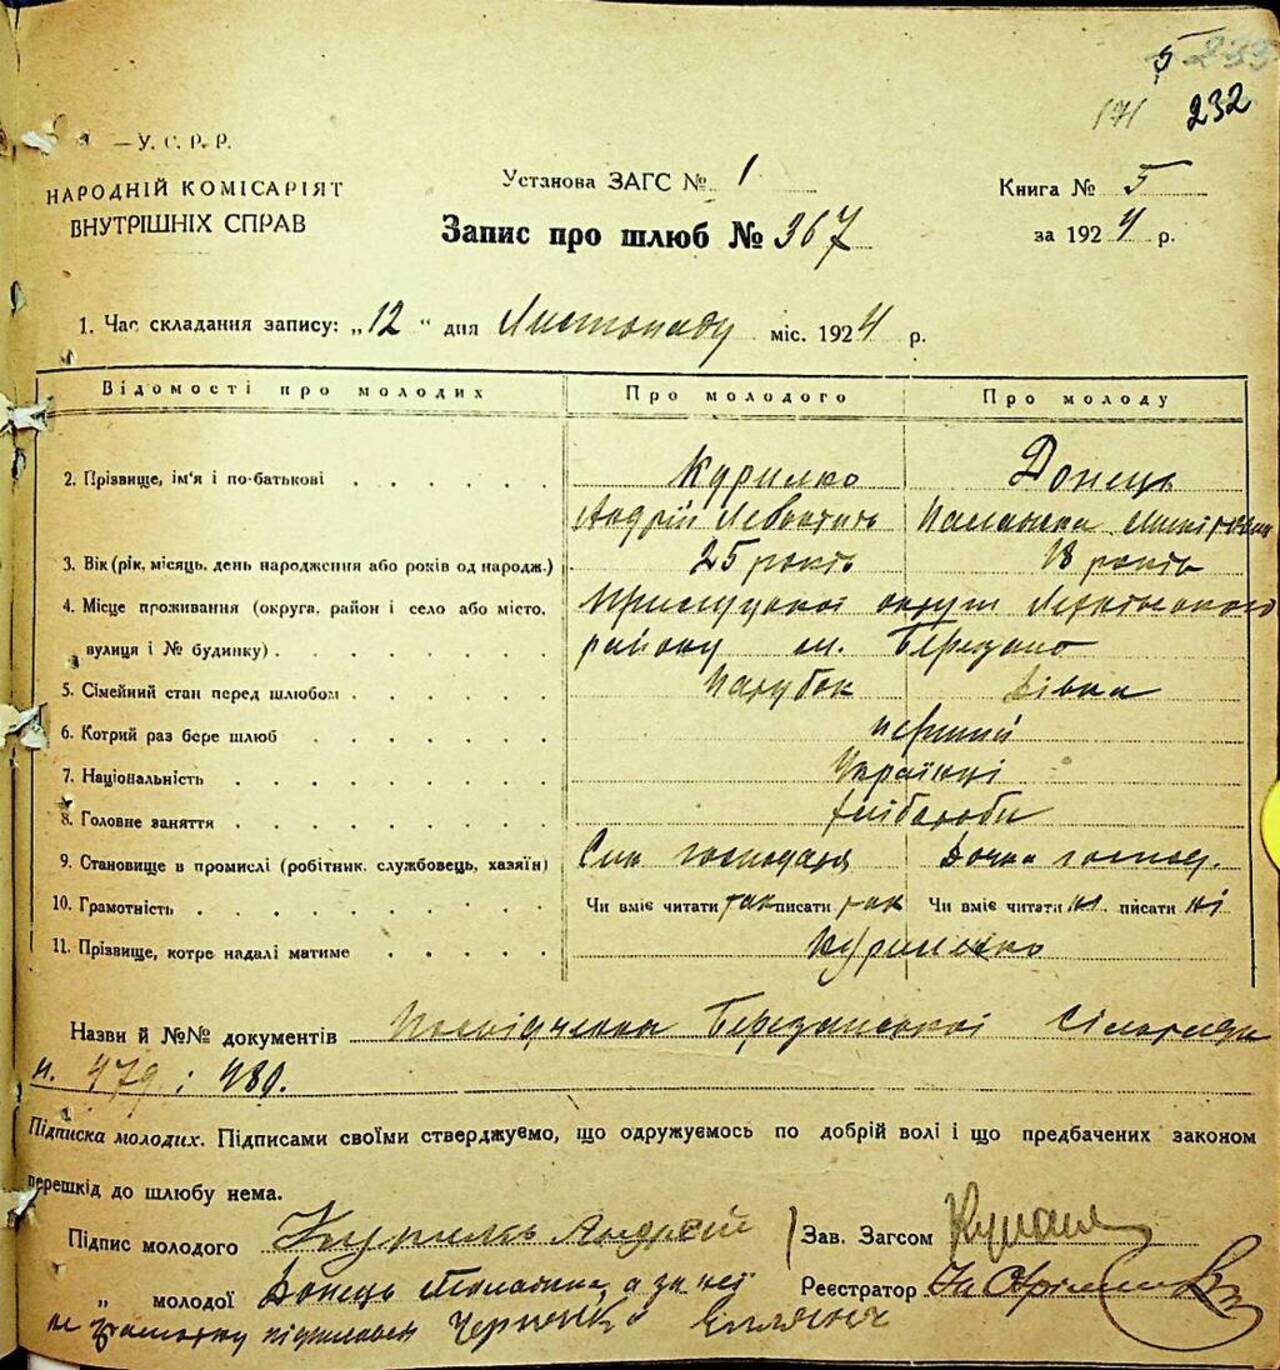 5 233
171 232
— У. С. Р. Р.
НАРОДНІЙ КОМІСАРІЯТ
ВНУТРІШНІХ СПРАВ
Установа ЗАГС № 1
Книга № 5
Запис про шлюб № 367
за 1924 р.
1. Час складання запису: „12“ дня Листопаду міс. 1924 р.
Відомості про молодих Про молодого Про молоду
2. Прізвище, ім'я і по-батькові Курилко Донець
Андрій Левкович Палажка
3. Вік (рік, місяць, день народження або років од народж.) 25 років 18 років
4. Місце проживання (округа, район і село або місто, Прилуцкої округи
вулиця і № будинку) району м. Березано
5. Сімейний стан перед шлюбом Парубок Дівка
6. Котрий раз бере шлюб перший
7. Національність Українці
8. Головне заняття хлібороби
9. Становище в промислі (робітник, службовець, хазяїн) Син господаря Дочка господ.
10. Грамотність Чи вміє читати так писати так Чи вміє читати ні писати ні
11. Прізвище, котре надалі матиме Курилко
Назви й №№ документів Посвідчення Березанської Сільради
н. 479 і 480.
Підписка молодих. Підписами своїми стверджуємо, що одружуємось по добрій волі і що предбачених законом
перешкід до шлюбу нема.
Підпис молодого Курилко Андрей Зав. Загсом
„ молодої Донець Палажка, а за неї Реєстратор
не грамотну підписався Черненко